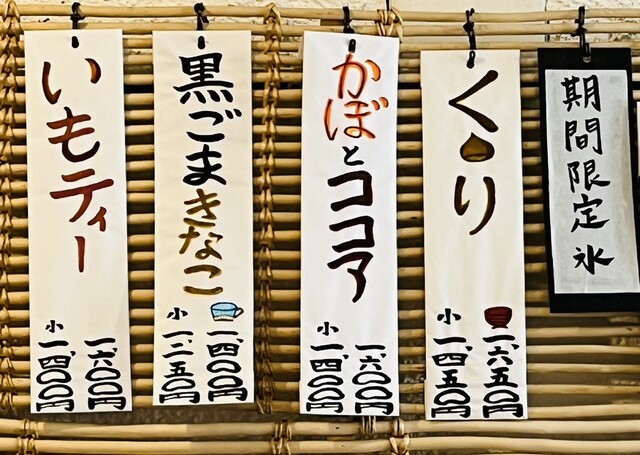 期間限定氷
くり
一、六五〇円
小 一、四五〇円
かぼとココア
一、六〇〇円
小 一、四〇〇円
黒ごまきなこ
一、四〇〇円
小 一、二五〇円
いもティー
一、六〇〇円
小 一、四〇〇円